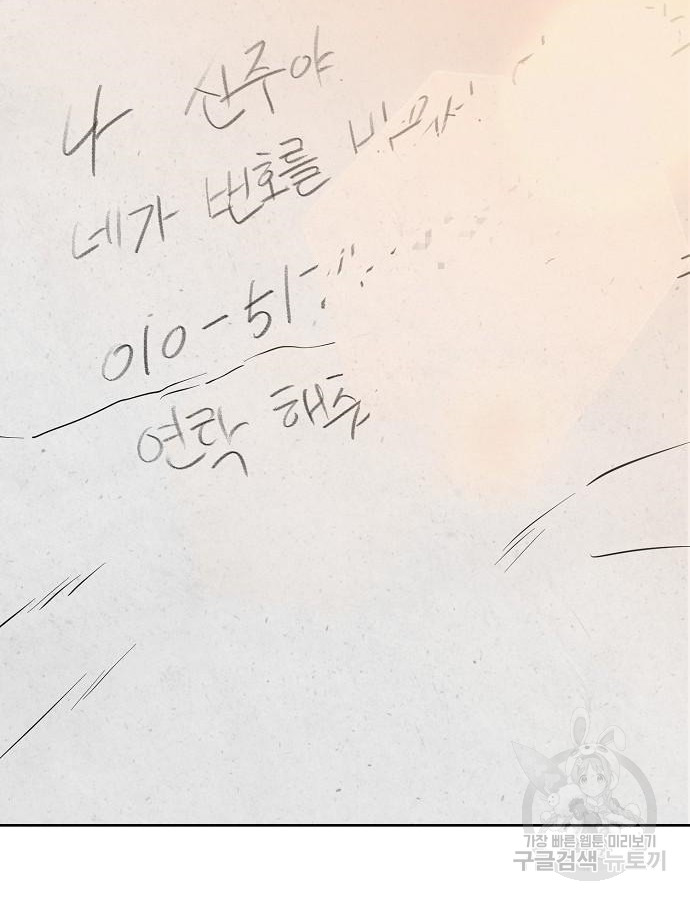 나 산주야
네가 번호를
010-51
연락 해줘
가장 빠른 웹툰 미리보기
구글검색 뉴토끼